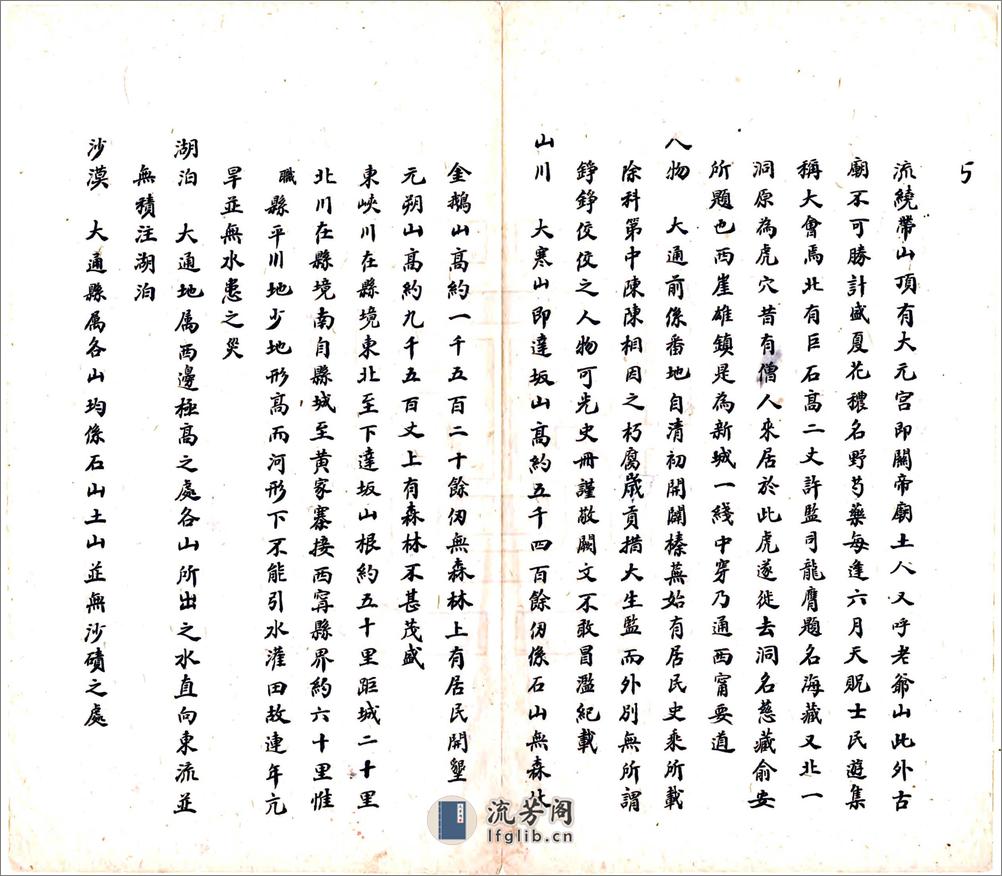 5
流繞帶山頂有大元宮即關帝廟土人又呼老爺山此外古
廟不可勝計盛夏花穠名野芍藥每逢六月天貺士民遊集
稱大會焉北有巨石高二丈許監司龍膺題名海藏又北一
洞原為虎穴昔有僧人來居於此虎遂徙去洞名慈藏俞安
所題也西崖雄鎮是為新城一綫中穿乃通西甯要道
人物　大通前係番地自清初開闢榛蕪始有居民史乘所載
除科第中陳陳相因之朽腐歲貢措大生監而外別無所謂
錚錚佼佼之人物可光史冊謹敬闕文不敢冒濫紀載
山川　大寒山即達坂山高約五千四百餘仞係石山無森林
金鵝山高約一千五百二十餘仞無森林上有居民開墾
元朔山高約九千五百丈上有森林不甚茂盛
東峽川在縣境東北至下達坂山根約五十里距城二十里
北川在縣境南自縣城至黄家寨接西甯縣界約六十里惟
職縣平川地少地形高而河形下不能引水灌田故連年亢
旱並無水患之災
湖泊　大通地属西邊極高之處各山所出之水直向東流並
無積注湖泊
沙漠　大通縣属各山均係石山土山並無沙磧之處
流芳阁
lfglib.cn